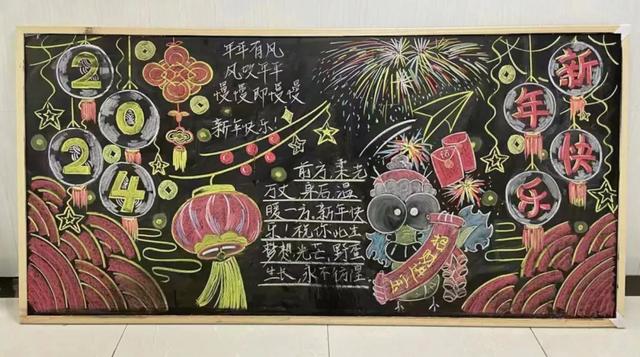 2024
年年有风
风吹年年
慢慢即慢慢
新年快乐!
前方,柔光
万丈,身后,温
暖一方,新年快
乐!祝你此生
梦想光芒,野蛮
生长,永不彷徨
新年快乐